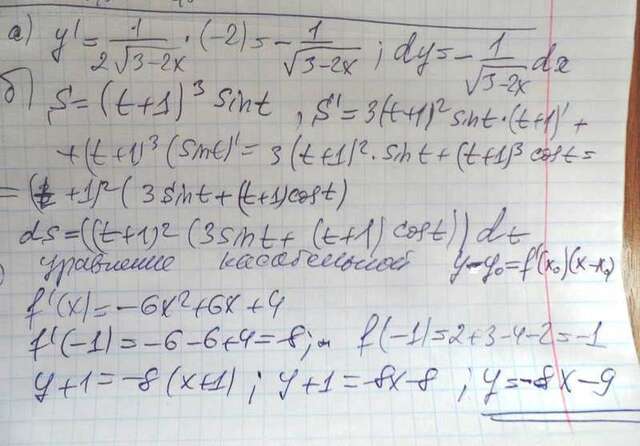 а) y' = 1/(2√(3-2x)) · (-2) = - 1/√(3-2x) ; dy = - 1/√(3-2x) dx
б) S = (t+1)³ sint , S' = 3(t+1)² sint·(t+1)' +
+(t+1)³ (sint)' = 3(t+1)²· sint + (t+1)³ cost =
= (t+1)² ( 3 sint + (t+1)cost)
dS = ((t+1)² (3sint + (t+1) cost)) dt
уравнение касательной y-y₀ = f'(x₀)(x-x₀)
f'(x) = -6x² + 6x + 4
f'(-1) = -6-6+4 = -8; f(-1) = 2+3-4-2 = -1
y+1 = -8(x+1) ; y+1 = -8x-8 ; y = -8x-9